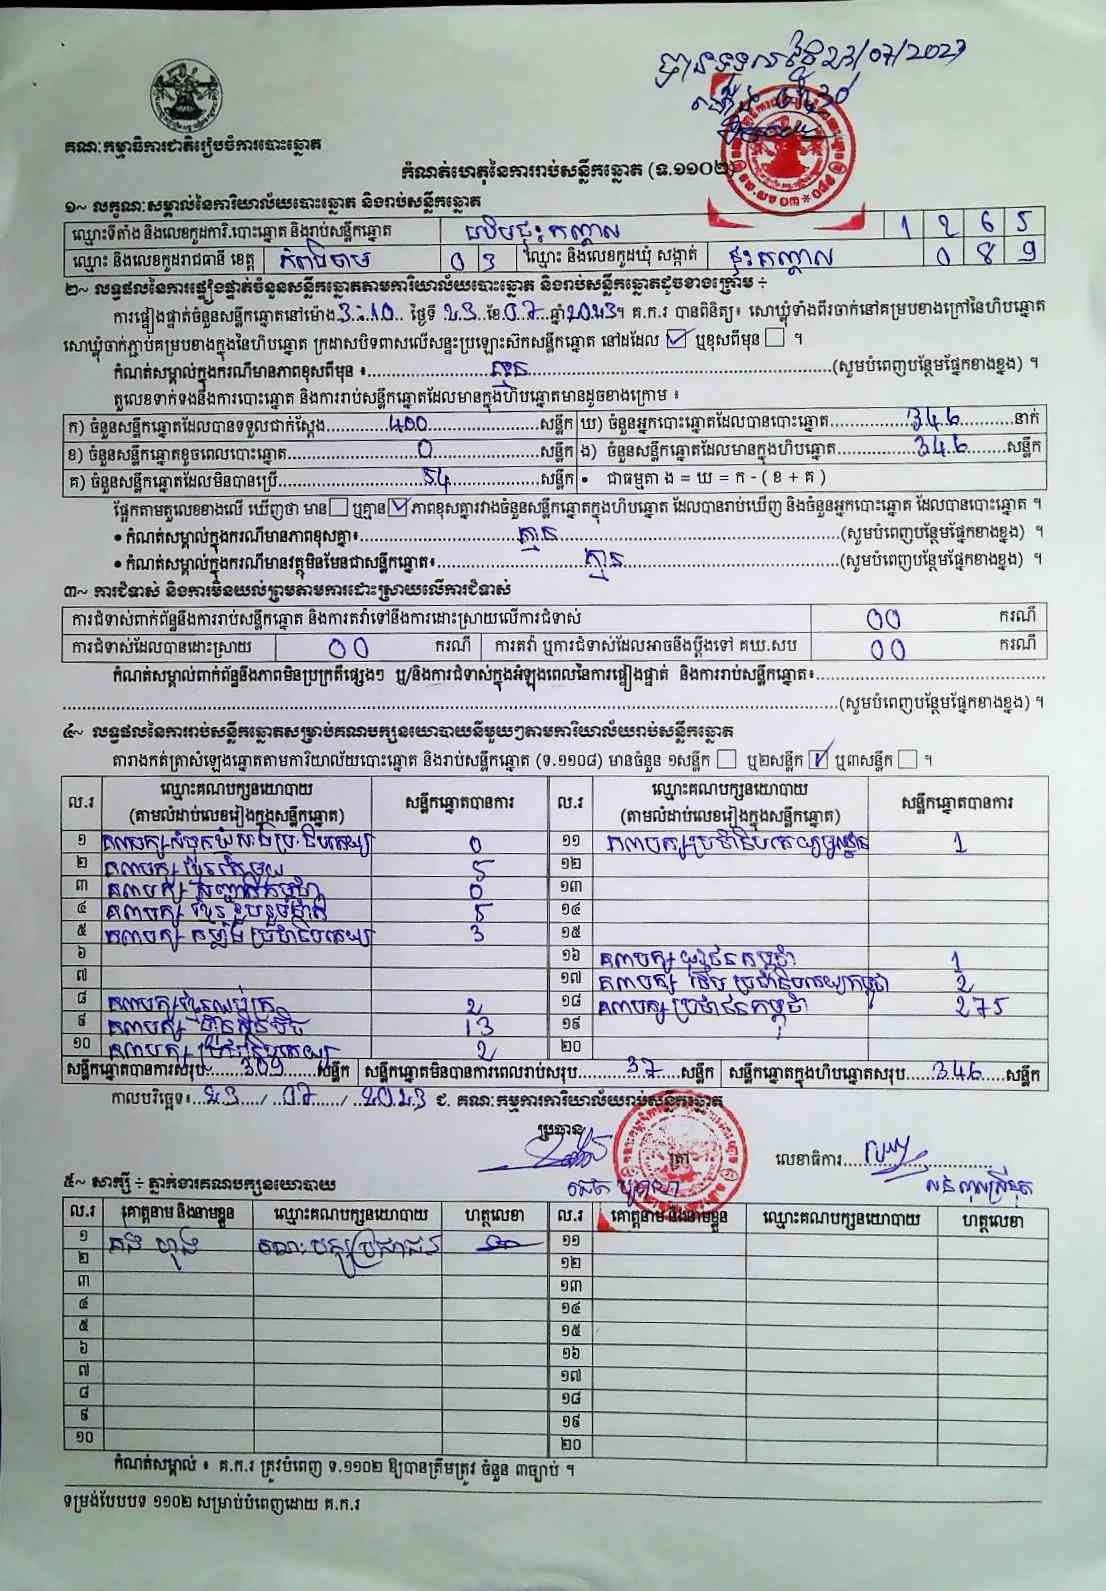 បានទទួលថ្ងៃ 23/07/2023
គណៈកម្មាធិការជាតិរៀបចំការបោះឆ្នោត
កំណត់ហេតុនៃការរាប់សន្លឹកឆ្នោត (ទ.១១០២)
១~ លក្ខណៈសម្គាល់នៃការិយាល័យបោះឆ្នោត និងរាប់សន្លឹកឆ្នោត
ឈ្មោះទីតាំង និងលេខកូដការិ.បោះឆ្នោត និងរាប់សន្លឹកឆ្នោត 1 2 6 5
ឈ្មោះ និងលេខកូដរាជធានី ខេត្ត កំពង់ចាម 0 3 ឈ្មោះ និងលេខកូដឃុំ សង្កាត់ 0 8 9
២~ លទ្ធផលនៃការផ្ទៀងផ្ទាត់ចំនួនសន្លឹកឆ្នោតតាមការិយាល័យបោះឆ្នោត និងរាប់សន្លឹកឆ្នោតដូចខាងក្រោម ÷
ការផ្ទៀងផ្ទាត់ចំនួនសន្លឹកឆ្នោតនៅម៉ោង 3:10 ថ្ងៃទី 23 ខែ 07 ឆ្នាំ 2023។ គ.ក.រ បានពិនិត្យ៖ សោឃ្លុំទាំងពីរចាក់នៅគម្របខាងក្រៅនៃហិបឆ្នោត
សោឃ្លុំចាក់ភ្ជាប់គម្របខាងក្នុងនៃហិបឆ្នោត ក្រដាសបិទពាសលើសន្ទះប្រឡោះស៊កសន្លឹកឆ្នោត នៅដដែល ☑ ឬខុសពីមុន ☐ ។
កំណត់សម្គាល់ក្នុងករណីមានភាពខុសពីមុន ៖ គ្មាន (សូមបំពេញបន្ថែមផ្នែកខាងខ្នង) ។
តួលេខទាក់ទងនឹងការបោះឆ្នោត និងការរាប់សន្លឹកឆ្នោតដែលមានក្នុងហិបឆ្នោតមានដូចខាងក្រោម ៖
ក) ចំនួនសន្លឹកឆ្នោតដែលបានទទួលជាក់ស្តែង 400 សន្លឹក ឃ) ចំនួនអ្នកបោះឆ្នោតដែលបានបោះឆ្នោត 346 នាក់
ខ) ចំនួនសន្លឹកឆ្នោតខូចពេលបោះឆ្នោត 0 សន្លឹក ង) ចំនួនសន្លឹកឆ្នោតដែលមានក្នុងហិបឆ្នោត 346 សន្លឹក
គ) ចំនួនសន្លឹកឆ្នោតដែលមិនបានប្រើ 54 សន្លឹក • ជាធម្មតា ង = ឃ = ក - ( ខ + គ )
ផ្អែកតាមតួលេខខាងលើ ឃើញថា មាន ☐ ឬគ្មាន ☑ ភាពខុសគ្នារវាងចំនួនសន្លឹកឆ្នោតក្នុងហិបឆ្នោត ដែលបានរាប់ឃើញ និងចំនួនអ្នកបោះឆ្នោត ដែលបានបោះឆ្នោត ។
• កំណត់សម្គាល់ក្នុងករណីមានភាពខុសគ្នា៖ គ្មាន (សូមបំពេញបន្ថែមផ្នែកខាងខ្នង) ។
• កំណត់សម្គាល់ក្នុងករណីមានវត្ថុមិនមែនជាសន្លឹកឆ្នោត៖ គ្មាន (សូមបំពេញបន្ថែមផ្នែកខាងខ្នង) ។
៣~ ការជំទាស់ និងការមិនយល់ព្រមតាមការដោះស្រាយលើការជំទាស់
ការជំទាស់ពាក់ព័ន្ធនឹងការរាប់សន្លឹកឆ្នោត និងការតវ៉ាទៅនឹងការដោះស្រាយលើការជំទាស់ 00 ករណី
ការជំទាស់ដែលបានដោះស្រាយ 00 ករណី ការតវ៉ា ឬការជំទាស់ដែលអាចនឹងប្តឹងទៅ គឃ.សប 00 ករណី
កំណត់សម្គាល់ពាក់ព័ន្ធនឹងភាពមិនប្រក្រតីផ្សេងៗ ឬ/និងការជំទាស់ក្នុងអំឡុងពេលនៃការផ្ទៀងផ្ទាត់ និងការរាប់សន្លឹកឆ្នោត៖
(សូមបំពេញបន្ថែមផ្នែកខាងខ្នង) ។
៤~ លទ្ធផលនៃការរាប់សន្លឹកឆ្នោតសម្រាប់គណបក្សនយោបាយនីមួយៗតាមការិយាល័យរាប់សន្លឹកឆ្នោត
តារាងកត់ត្រាសំឡេងឆ្នោតតាមការិយាល័យបោះឆ្នោត និងរាប់សន្លឹកឆ្នោត (ទ.១១០៨) មានចំនួន ១សន្លឹក ☐ ឬ២សន្លឹក ☑ ឬ៣សន្លឹក ☐ ។
ល.រ ឈ្មោះគណបក្សនយោបាយ (តាមលំដាប់លេខរៀងក្នុងសន្លឹកឆ្នោត) សន្លឹកឆ្នោតបានការ ល.រ ឈ្មោះគណបក្សនយោបាយ (តាមលំដាប់លេខរៀងក្នុងសន្លឹកឆ្នោត) សន្លឹកឆ្នោតបានការ
១ គណបក្ស សំបុកឃ្មុំសង្គមប្រជាធិបតេយ្យ 0 ១១ គណបក្សប្រជាធិបតេយ្យមូលដ្ឋាន 1
២ គណបក្ស ខ្មែរតែមួយ 5 ១២
៣ គណបក្ស សញ្ជាតិកម្ពុជា 0 ១៣
៤ គណបក្ស ខ្មែររួបរួមជាតិ 5 ១៤
៥ គណបក្ស កម្លាំងប្រជាធិបតេយ្យ 3 ១៥
៦ ១៦ គណបក្ស យុវជនកម្ពុជា 1
៧ ១៧ គណបក្ស ប្រជាធិបតេយ្យកម្ពុជា 2
៨ គណបក្សខ្មែរឈប់ក្រ 2 ១៨ គណបក្សប្រជាជនកម្ពុជា 275
៩ គណបក្ស ហ្វ៊ុនស៊ិនប៉ិច 13 ១៩
១០ គណបក្ស ប្រជាធិបតេយ្យ 2 ២០
សន្លឹកឆ្នោតបានការសរុប 309 សន្លឹក សន្លឹកឆ្នោតមិនបានការពេលរាប់សរុប 37 សន្លឹក សន្លឹកឆ្នោតក្នុងហិបឆ្នោតសរុប 346 សន្លឹក
កាលបរិច្ឆេទ៖ 23 / 07 / 2023 ជ. គណៈកម្មការការិយាល័យរាប់សន្លឹកឆ្នោត
ប្រធាន ត្រា លេខាធិការ
៥~ សាក្សី ÷ ភ្នាក់ងារគណបក្សនយោបាយ
ល.រ គោត្តនាម និងនាមខ្លួន ឈ្មោះគណបក្សនយោបាយ ហត្ថលេខា ល.រ គោត្តនាម និងនាមខ្លួន ឈ្មោះគណបក្សនយោបាយ ហត្ថលេខា
១ គណៈបក្សប្រជាជន ១១
២ ១២
៣ ១៣
៤ ១៤
៥ ១៥
៦ ១៦
៧ ១៧
៨ ១៨
៩ ១៩
១០ ២០
កំណត់សម្គាល់ ៖ គ.ក.រ ត្រូវបំពេញ ទ.១១០២ ឱ្យបានត្រឹមត្រូវ ចំនួន ៣ច្បាប់ ។
ទម្រង់បែបបទ ១១០២ សម្រាប់បំពេញដោយ គ.ក.រ